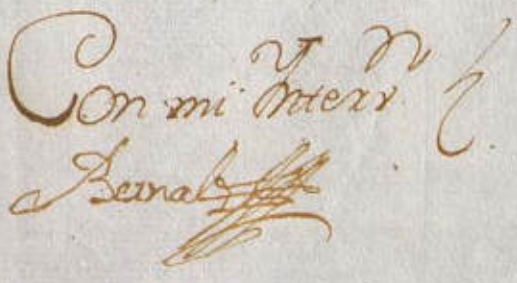 Con mi Ynterv.ⁿ
Bernal